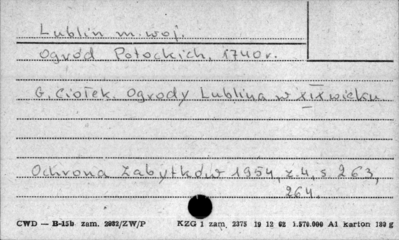 Lublin m. woj.
Ogród Potockich, 1740r.
G. Ciołek. Ogrody Lublina w XIX wieku
Ochrona Zabytków 1954, z.4, s 263,
264.
CWD — B-15b zam. 2082/ZW/P KZG 1 zam. 2375 19 12 62 1.570.000 A1 karton 180 g